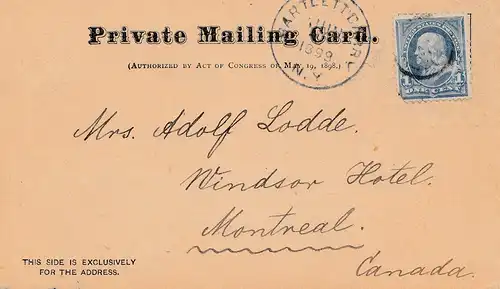 Private Mailing Card.
(AUTHORIZED BY ACT OF CONGRESS OF MAY 19, 1898.)
1899
ONE CENT
Mrs. Adolf Lodde.
Windsor Hotel.
Montreal.
Canada.
THIS SIDE IS EXCLUSIVELY
FOR THE ADDRESS.